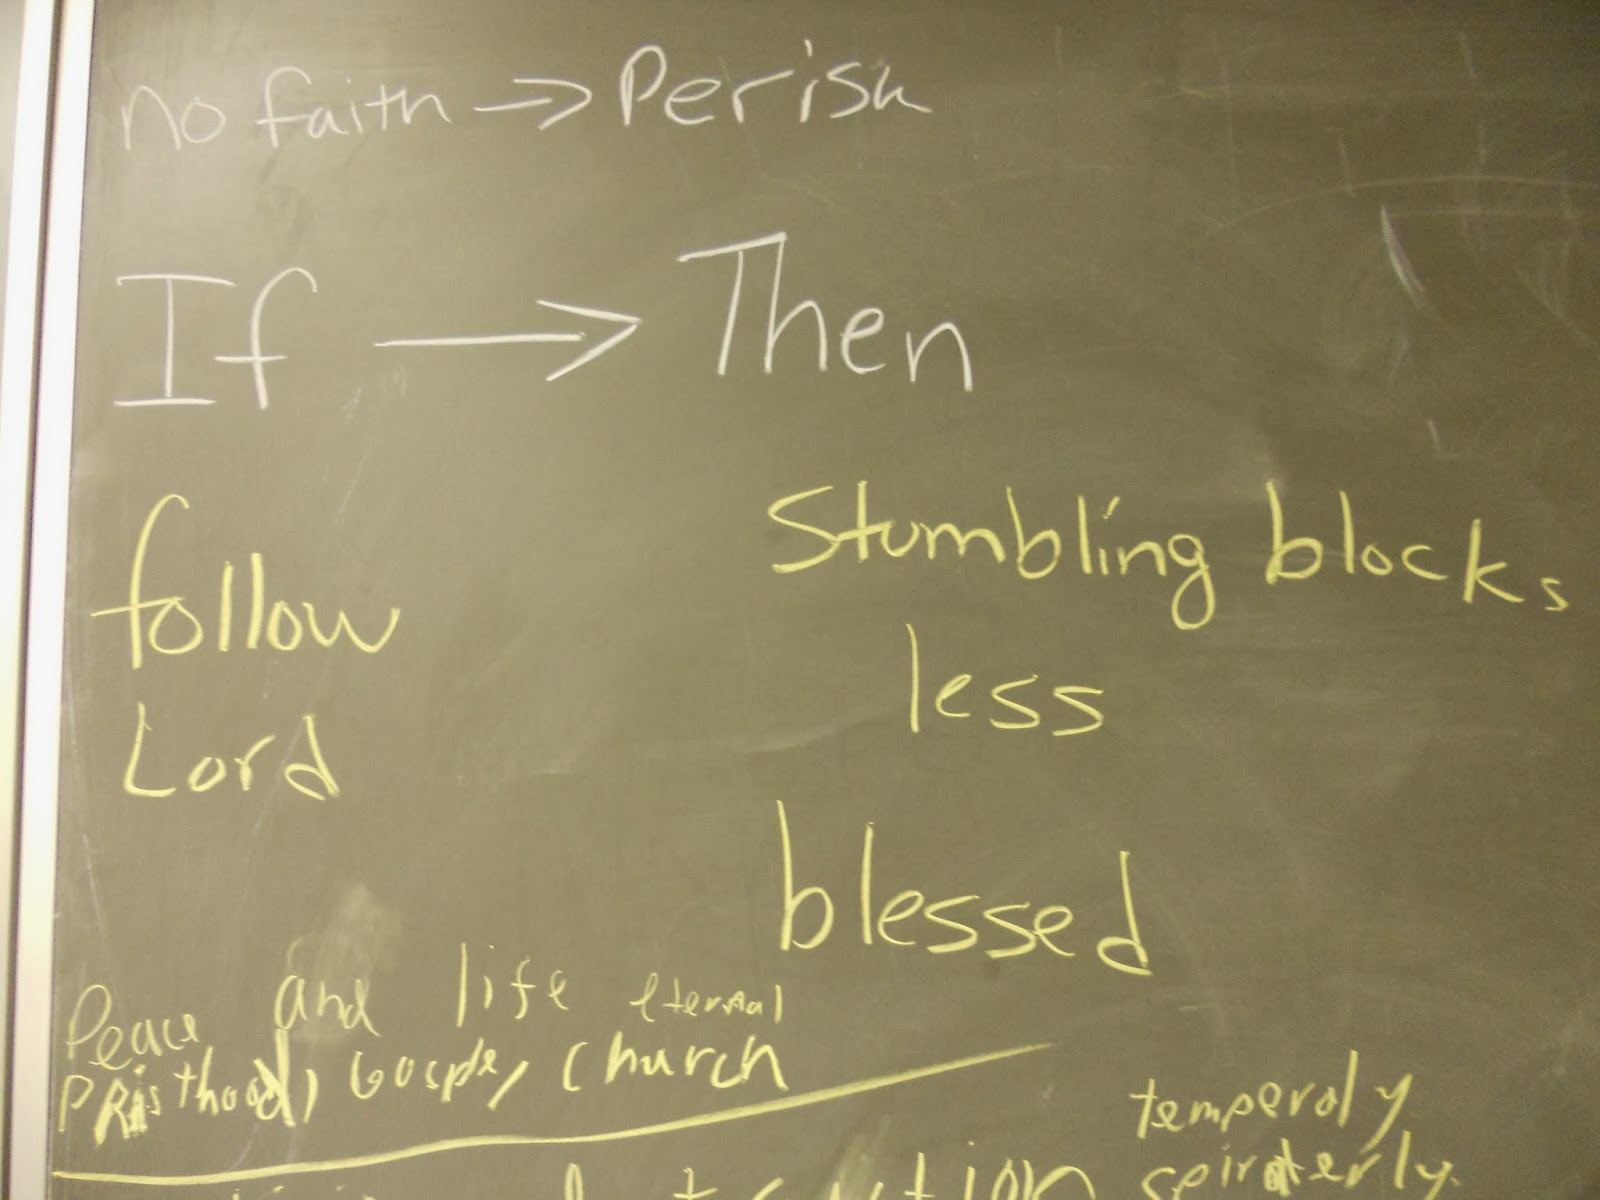 no faith → Perish
If → Then
follow Stumbling blocks
Lord less
blessed
Peace and life eternal
PRisthood, Gosple, church
temperaly
spiraterly.